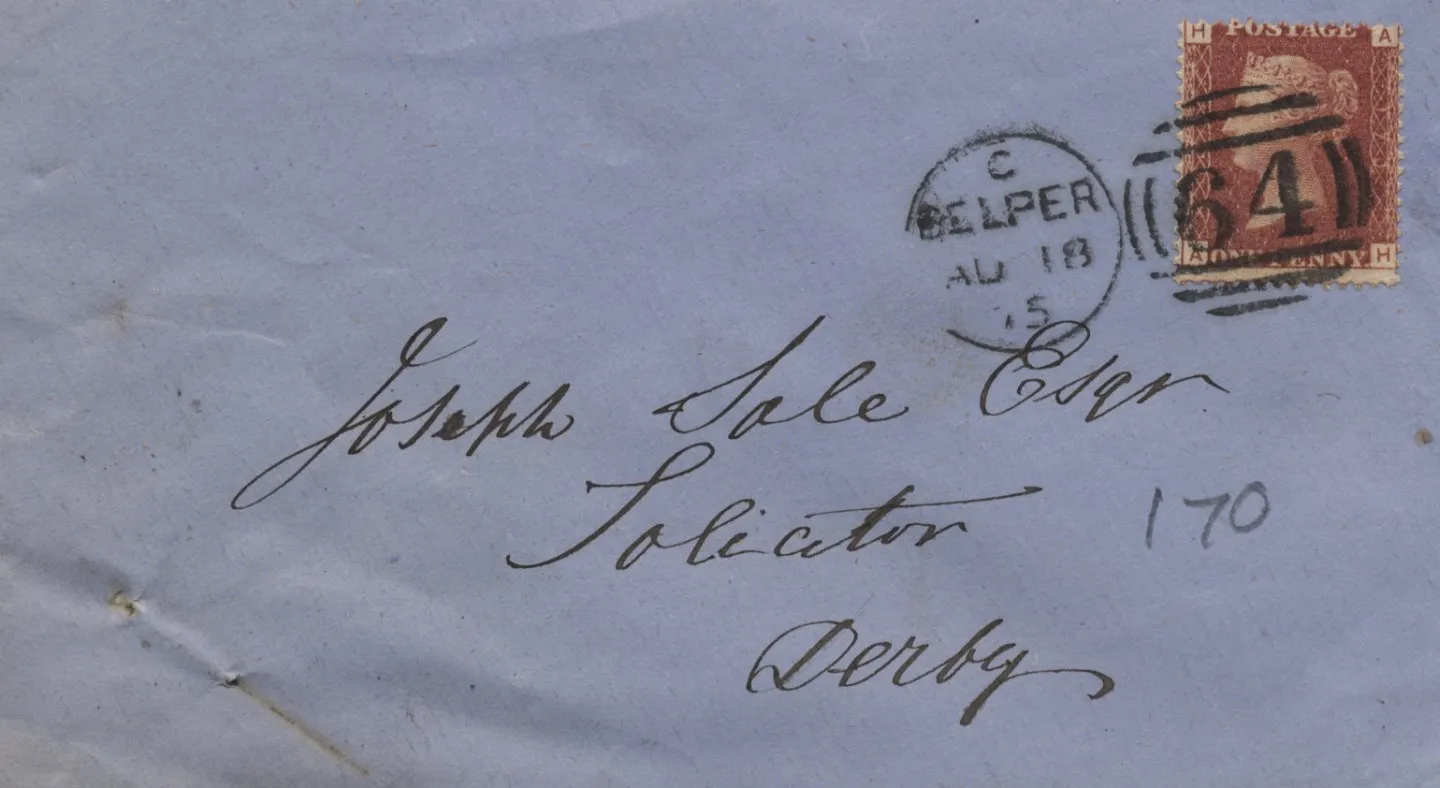 H POSTAGE A
C
BELPER
AU 18
75
64
A ONE PENNY H
Joseph Sale Esqr
Solicitor
170
Derby